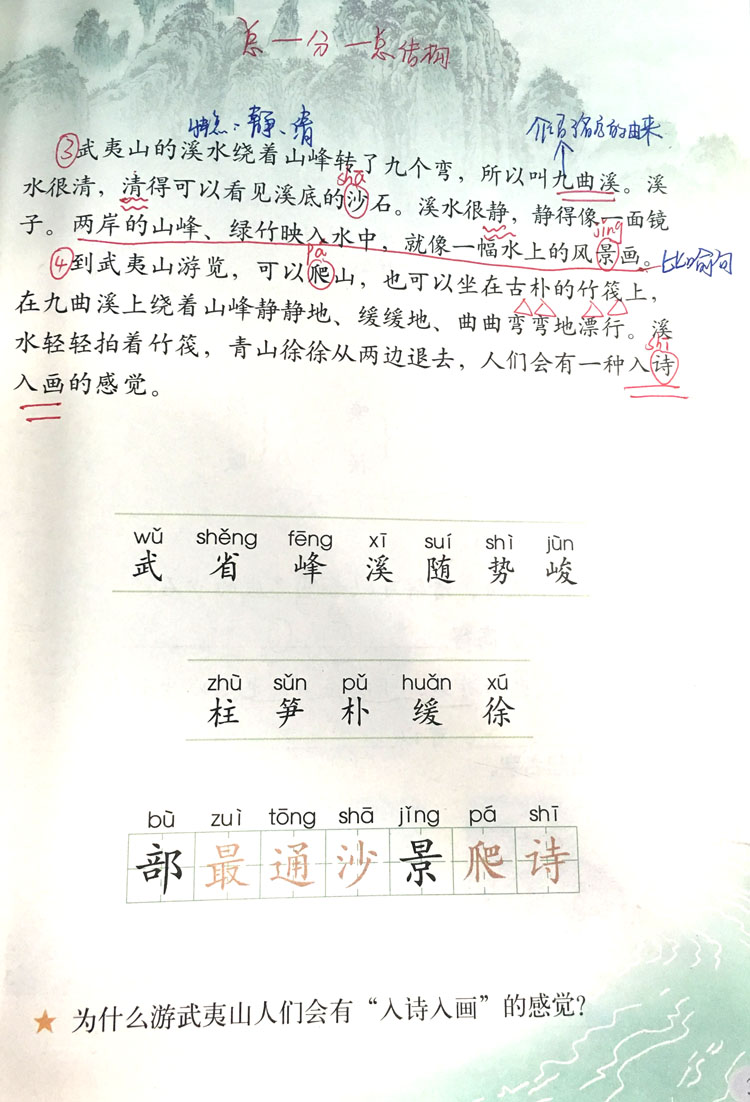 总—分—总结构
特点：静、清
介绍了名字的由来
③武夷山的溪水绕着山峰转了九个弯，所以叫九曲溪。溪
shā
水很清，清得可以看见溪底的沙石。溪水很静，静得像一面镜
jǐng
子。两岸的山峰、绿竹映入水中，就像一幅水上的风景画。
比喻句
pá
④到武夷山游览，可以爬山，也可以坐在古朴的竹筏上，
在九曲溪上绕着山峰静静地、缓缓地、曲曲弯弯地漂行。溪
shī
水轻轻拍着竹筏，青山徐徐从两边退去，人们会有一种入诗
入画的感觉。
wǔ shěng fēng xī suí shì jùn
武 省 峰 溪 随 势 峻
zhù sǔn pǔ huǎn xú
柱 笋 朴 缓 徐
bù zuì tōng shā jǐng pá shī
部 最 通 沙 景 爬 诗
为什么游武夷山人们会有“入诗入画”的感觉？